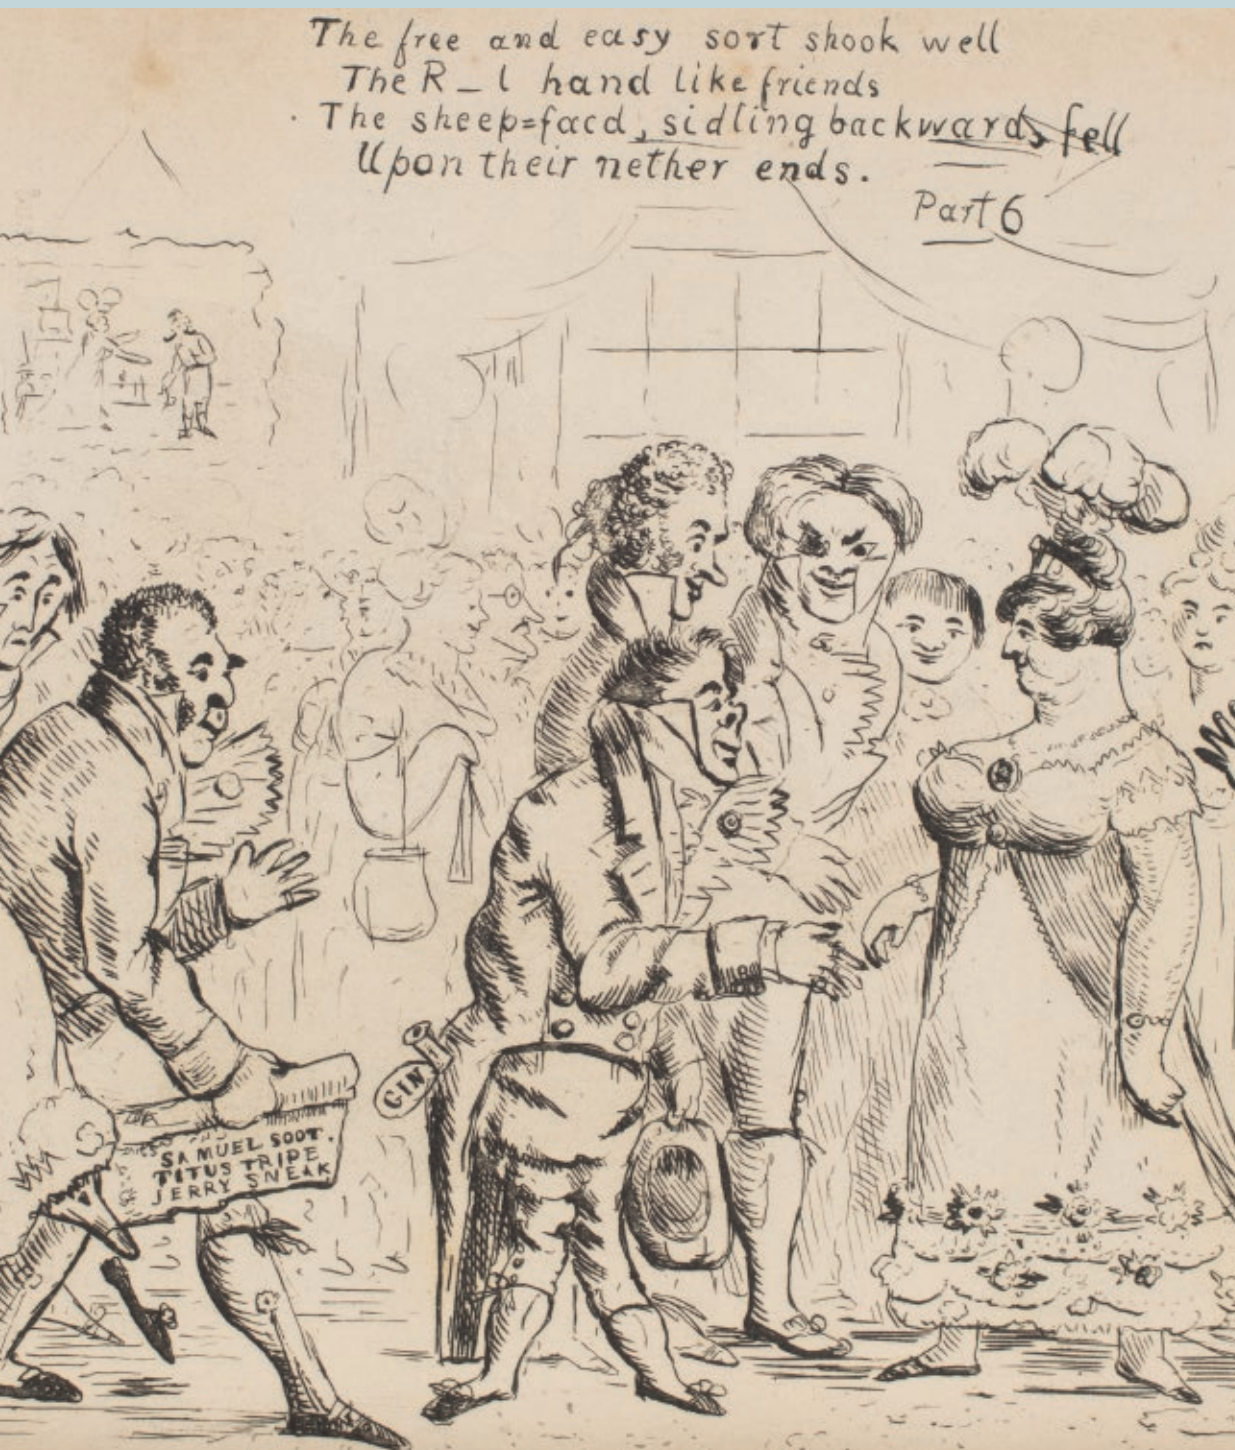 The free and easy sort shook well
The R_l hand like friends
The sheep=facd, sidling backwards fell
Upon their nether ends.
Part 6
GIN
SAMUEL SOOT.
TITUS TRIPE
JERRY SNEAK